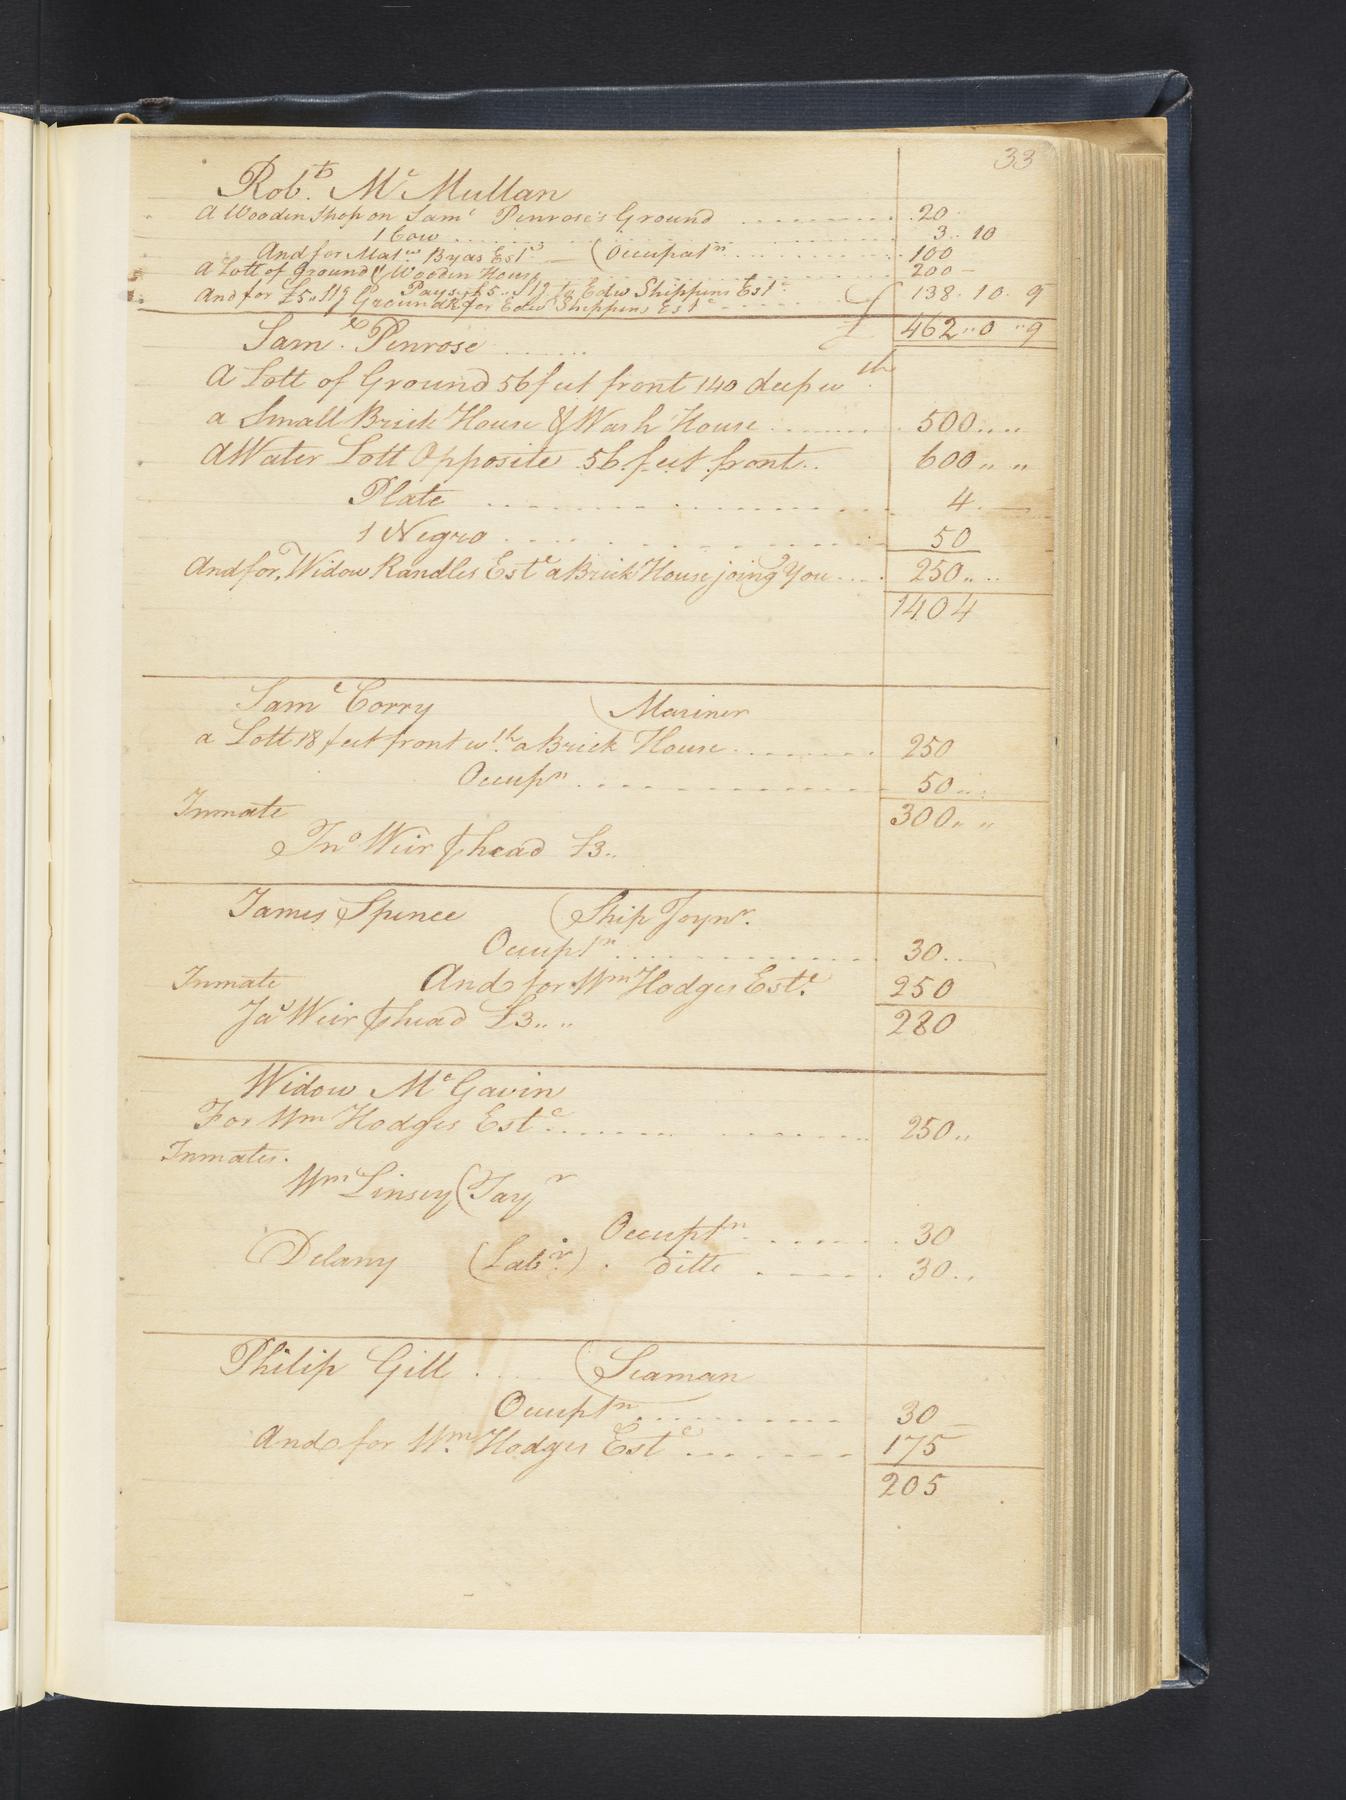 33
Robt. Mc Mullan
A Wooden Shop on Saml Penrose's Ground 20
1 Cow 3.. 10
And for Matw. Byas Este (Occupatn 100
A Lott of Ground & Wooden House 200 -
Pays £5.. 11 9 to Edw Shippins Este
And for £5.. 11 9 Ground R for Edw Shippins Este 138. 10. 9
£ 462.. 0 .. 9
Saml. Penrose
A Lott of Ground 56 feet front 140 deep wth.
a Small Brick House & Wash House 500.. ..
A Water Lott Opposite 56 feet front.. 600 .. ..
Plate 4. -
1 Negro 50
And for, Widow Randles Este a Brick House joing You 250.. ..
1404
Saml Corry (Mariner
a Lott 18 feet front wth. a Brick House 250
Occupn 50 ..
Inmate
300.. ..
Jno Weir ⅌ head £3..
James Spence (Ship Joynr.
Occuptn 30..
Inmate And for Wm Hodges Este. 250
Jas Weir ⅌ head £3.. .. 280
Widow Mc Gavin
For Wm Hodges Este 250..
Inmates.
Wm Linsey (Tayr
Occuptn 30
Delany (Labr.) . ditte 30..
Philip Gill (Seaman
Occuptn 30
And for Wm. Hodges Este 175
205